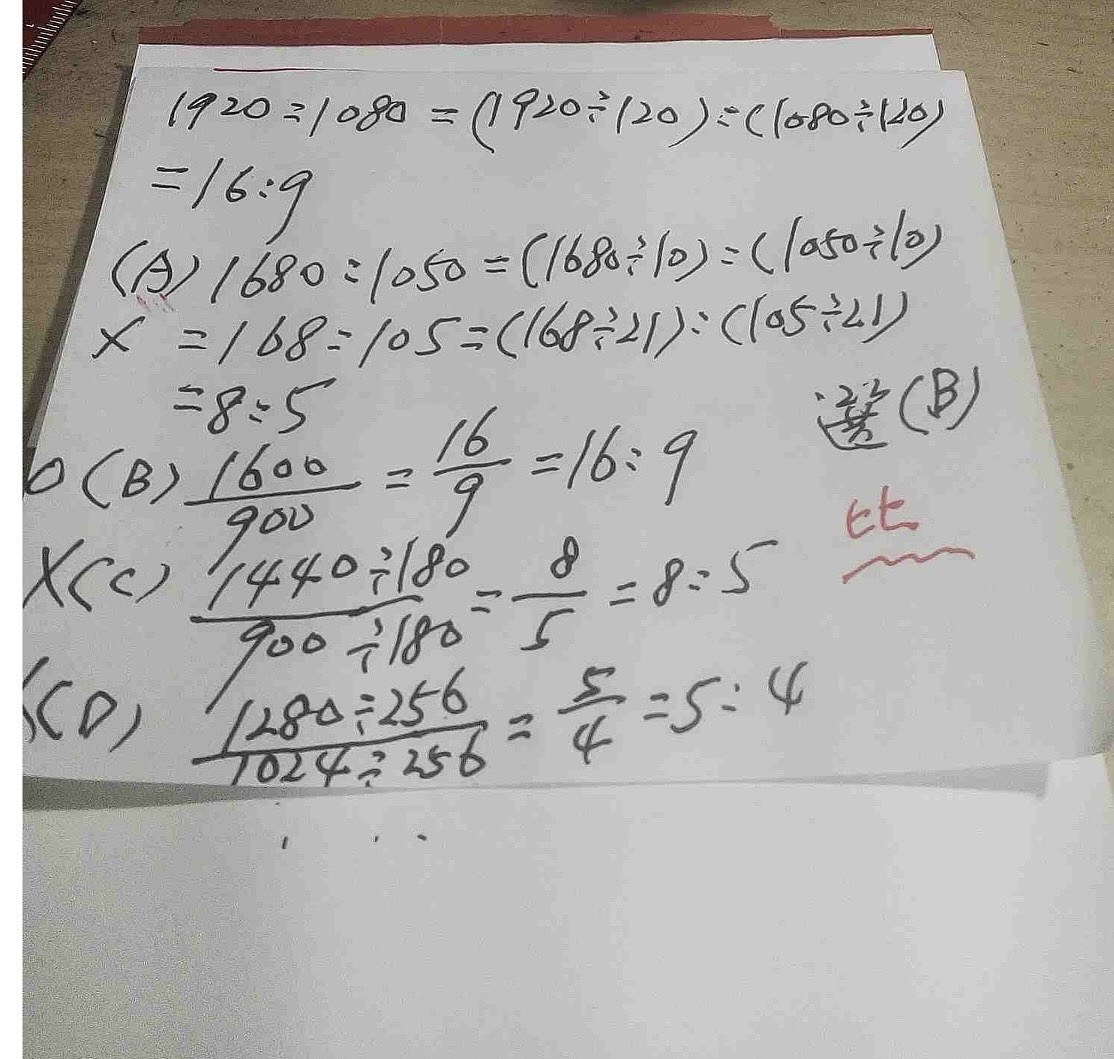 1920:1080=(1920÷120):(1080÷120)
=16:9
(A)1680:1050=(1680÷10):(1050÷10)
× =168:105=(168÷21):(105÷21)
=8:5
選(B)
O(B) 1600/900 = 16/9 =16:9
比
X(C) 1440÷180/900÷180 = 8/5 =8:5
(D) 1280÷256/1024÷256 = 5/4 =5:4